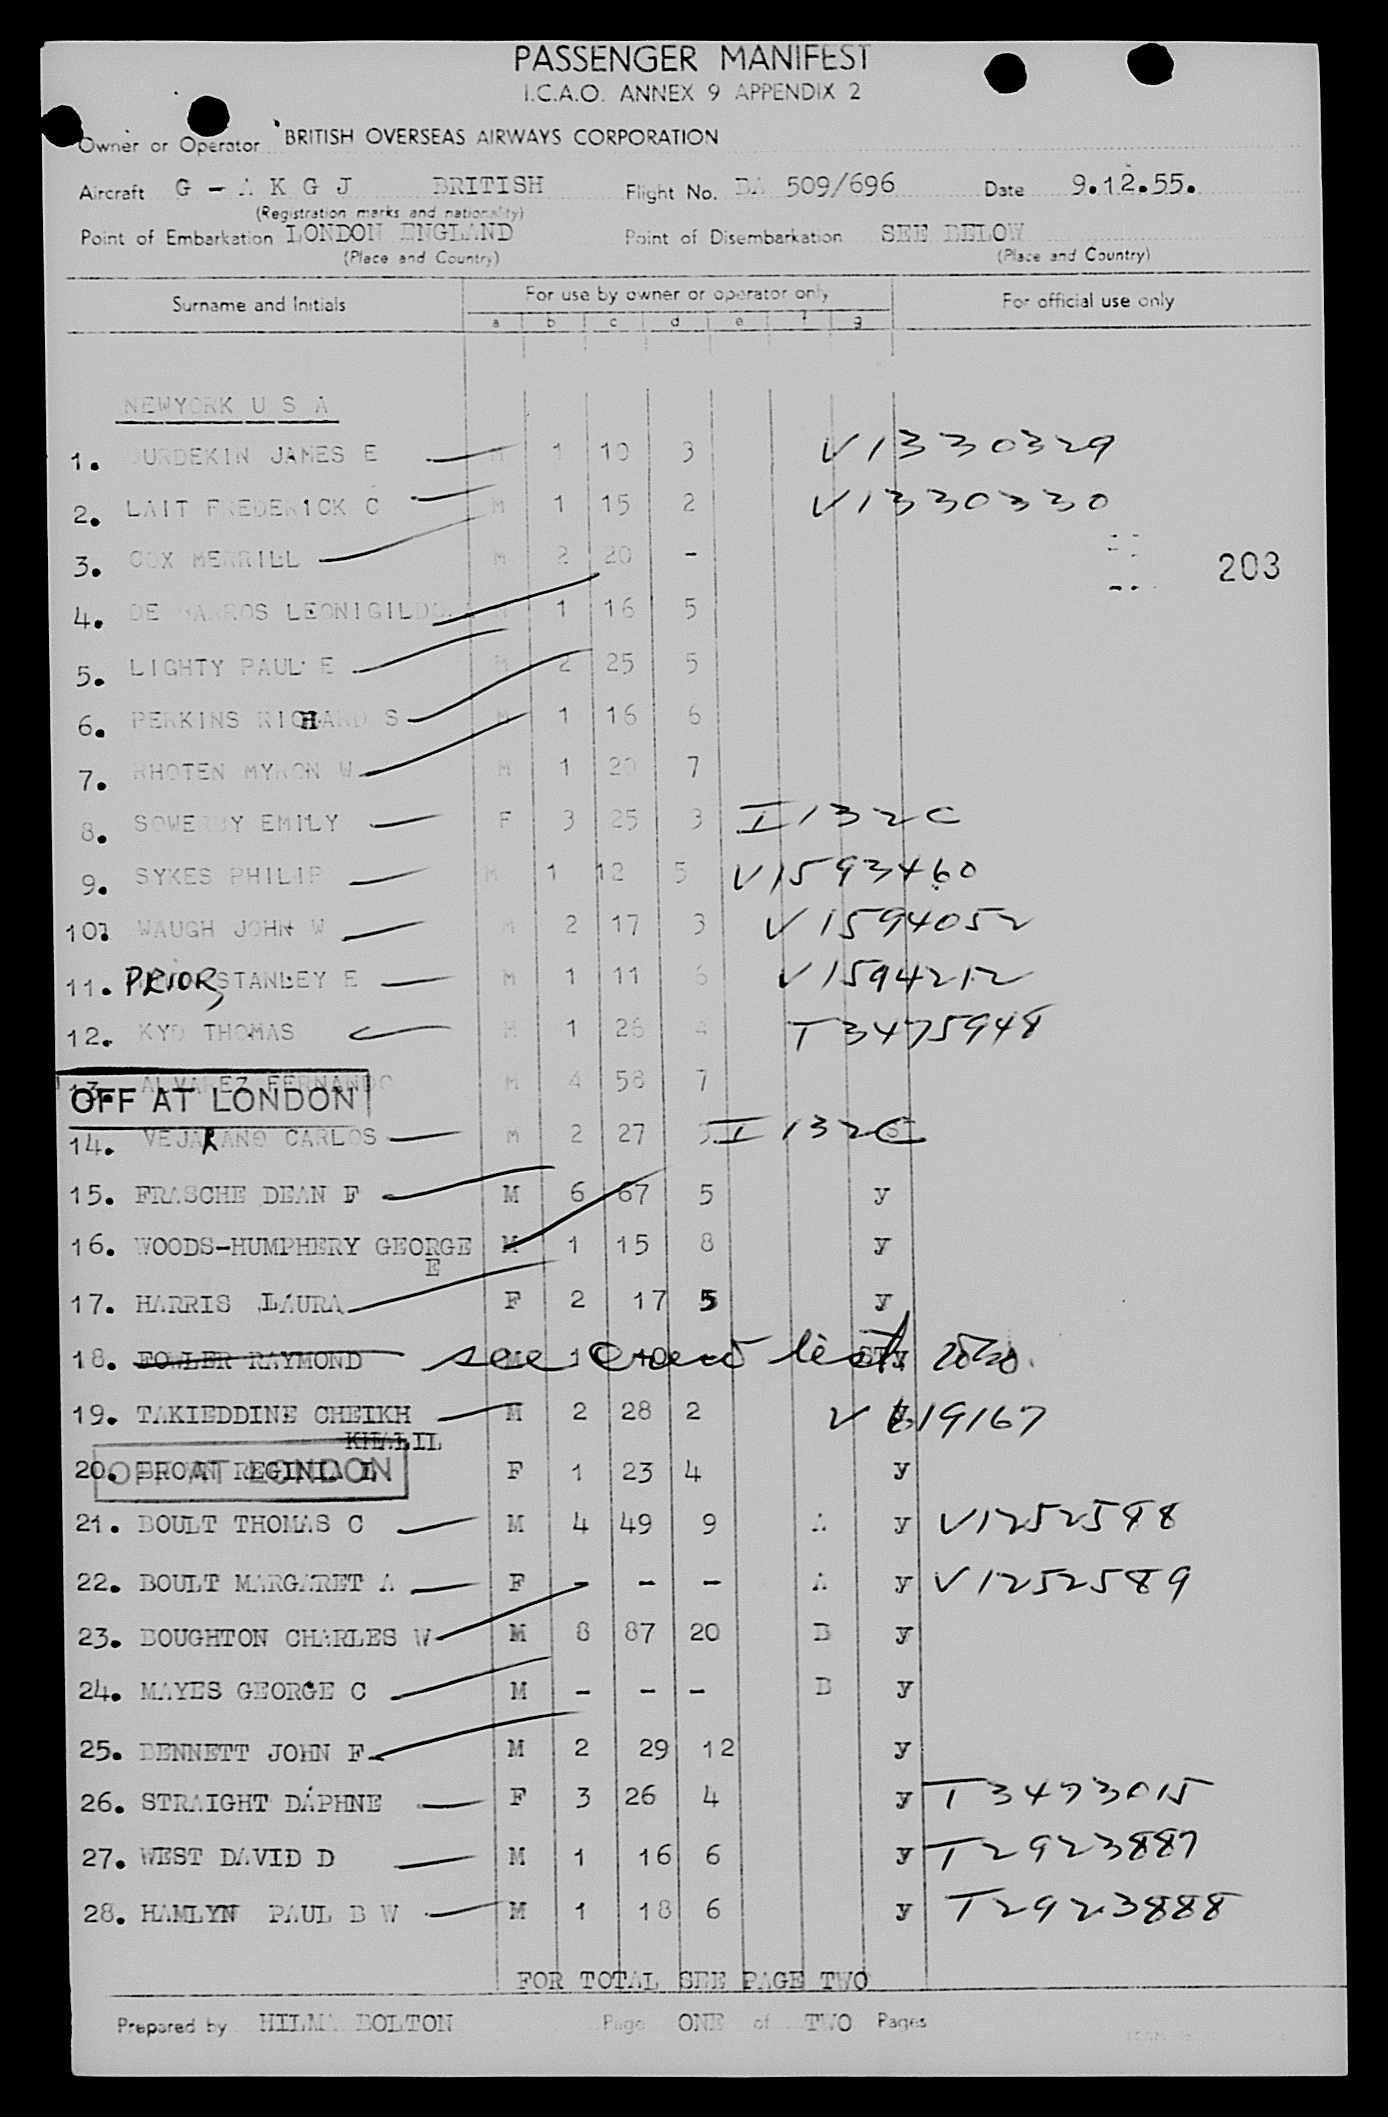 PASSENGER MANIFEST
I.C.A.O. ANNEX 9 APPENDIX 2
Owner or Operator BRITISH OVERSEAS AIRWAYS CORPORATION
Aircraft G - A K G J BRITISH Flight No. BA 509/696 Date 9.12.55.
(Registration marks and nationality)
Point of Embarkation LONDON ENGLAND Point of Disembarkation SEE BELOW
(Place and Country) (Place and Country)
Surname and Initials For use by owner or operator only For official use only
a b c d e f g
NEWYORK U S A
1. BURDEKIN JAMES E M 1 10 3 V1330329
2. LAIT FREDERICK C M 1 15 2 V1330330
3. COX MERRILL M 2 20 -
203
4. DE BARROS LEONIGILDO M 1 16 5
5. LIGHTY PAUL E M 2 25 5
6. PERKINS RICHARD S M 1 16 6
7. RHOTEN MYRON W M 1 20 7
8. SOWERBY EMILY F 3 25 3 I132C
9. SYKES PHILIP M 1 12 5 V1593460
10. WAUGH JOHN W M 2 17 3 V1594052
11. PRIOR, STANLEY E M 1 11 6 V1594212
12. KYD THOMAS M 1 26 4 T3475948
13. ALVAREZ FERNANDO M 4 58 7
OFF AT LONDON
14. VEJARANO CARLOS M 2 27 I132C
15. FRASCHE DEAN F M 6 67 5 y
16. WOODS-HUMPHERY GEORGE M 1 15 8 y
E
17. HARRIS LAURA F 2 17 5 y
18. FOWLER RAYMOND M 1 10 see crew list
19. TAKIEDDINE CHEIKH M 2 28 2 V 619167
KHALIL
20. BROWN REGINIA L F 1 23 4 y
OFF AT LONDON
21. BOULT THOMAS C M 4 49 9 A y V1252598
22. BOULT MARGARET A F - - - A y V1252589
23. BOUGHTON CHARLES W M 8 87 20 B y
24. MAYES GEORGE C M - - - B y
25. BENNETT JOHN F M 2 29 12 y
26. STRAIGHT DAPHNE F 3 26 4 y T3473015
27. WEST DAVID D M 1 16 6 y T2923887
28. HAMLYN PAUL B W M 1 18 6 y T2923888
FOR TOTAL SEE PAGE TWO
Prepared by HILMA BOLTON Page ONE of TWO Pages